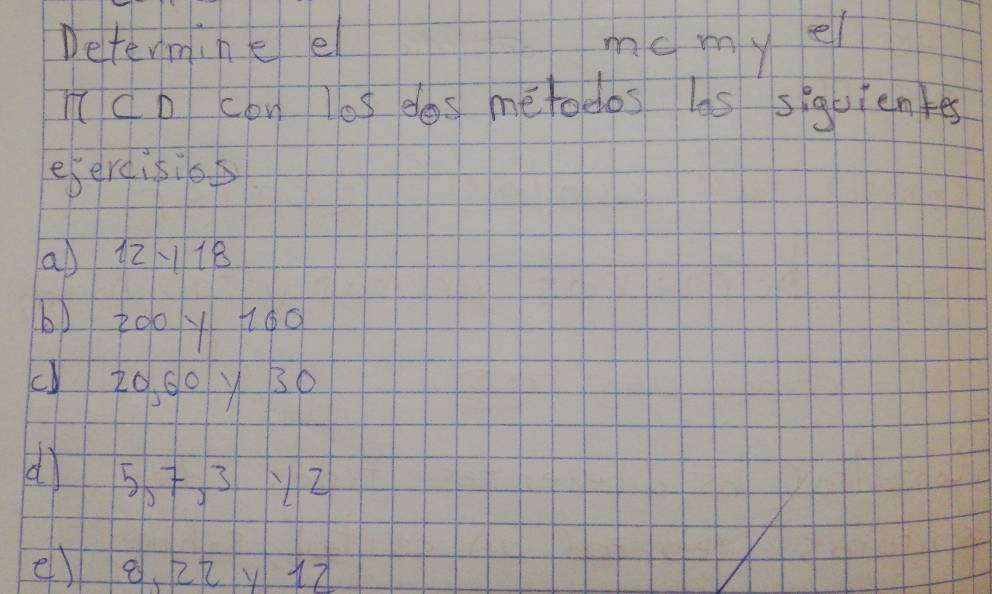 Determine el mcm y el
MCD con los dos métodos los siguientes
ejercisios
a) 12 y 18
b) 200 y 160
c) 20,60 y 30
d) 5,7,3 y 2
e) 8,22 y 12